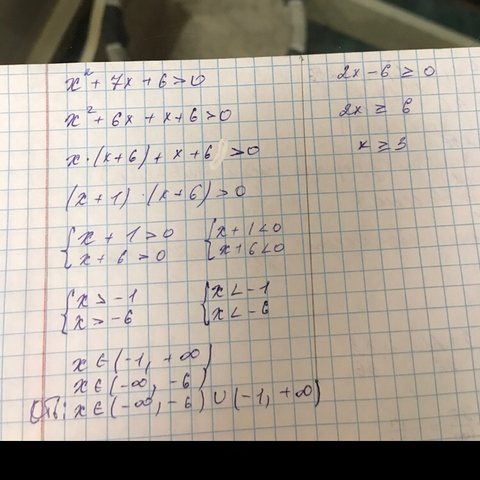 x² + 7x + 6 > 0
x² + 6x + x + 6 > 0
x · (x + 6) + x + 6 > 0
(x + 1) · (x + 6) > 0
{ x + 1 > 0
x + 6 > 0
{ x + 1 < 0
x + 6 < 0
{ x > -1
x > -6
{ x < -1
x < -6
x ∈ (-1, +∞)
x ∈ (-∞, -6)
Отв: x ∈ (-∞, -6) ∪ (-1, +∞)
2x - 6 ≥ 0
2x ≥ 6
x ≥ 3